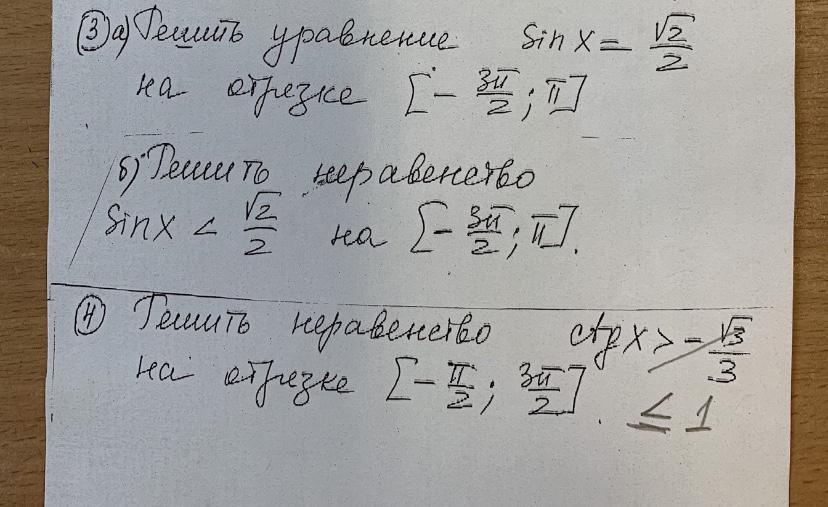 ③ а) Решить уравнение sin x = √2/2
на отрезке [-3π/2; π]
б) Решить неравенство
sin x < √2/2 на [-3π/2; π].
④ Решить неравенство ctg x > -√3/3
на отрезке [-π/2; 3π/2]. ≤ 1